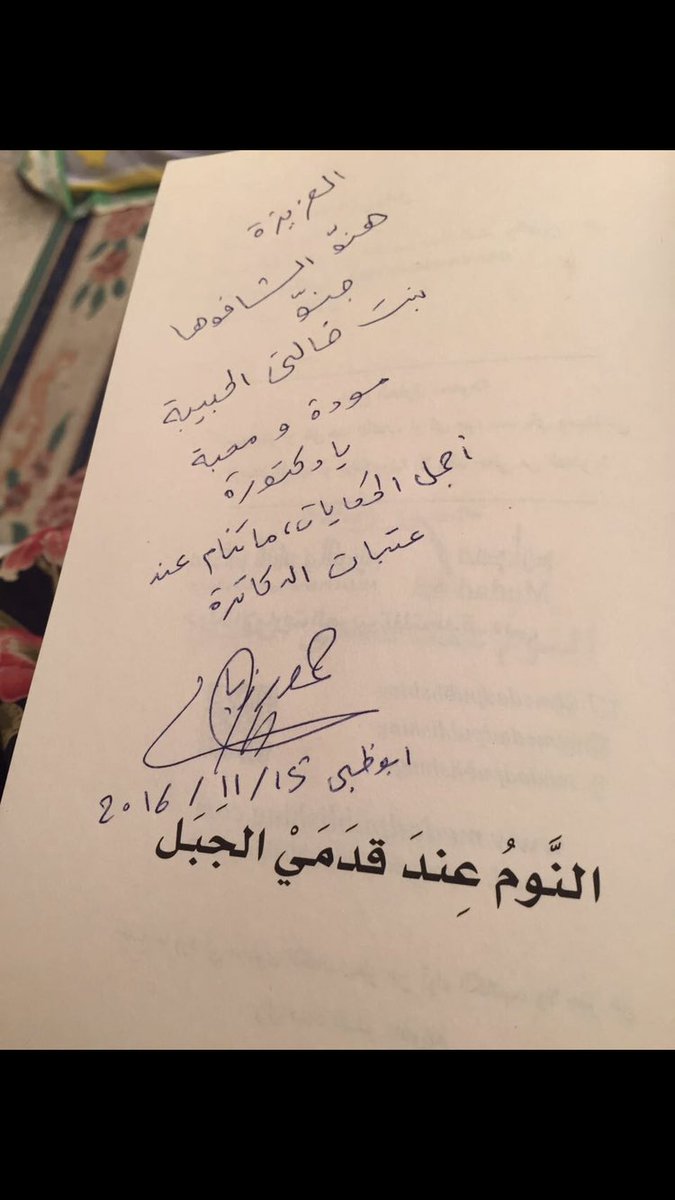 العزيزة
هنوّ الشافوها
جنوّ
بنت خالتي الحبيبة
مودة و محبة
يا دكتورة
أجمل الحكايات، ما تنام عند
عتبات الدكاترة
ابوظبي 15/11/2016
النَّومُ عِندَ قدَمَيْ الجَبَل